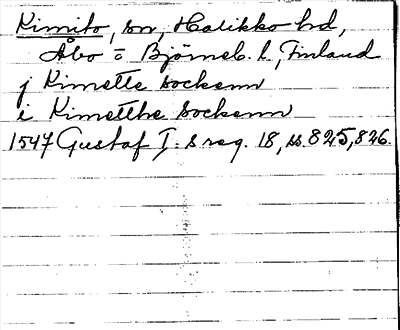 Kimito, sn, Halikko hd,
Åbo o Björneb. l., Finland
j Kimette sockenn
i Kimetthe sockenn
1547 Gustaf I:s reg. 18, ss. 825, 826.